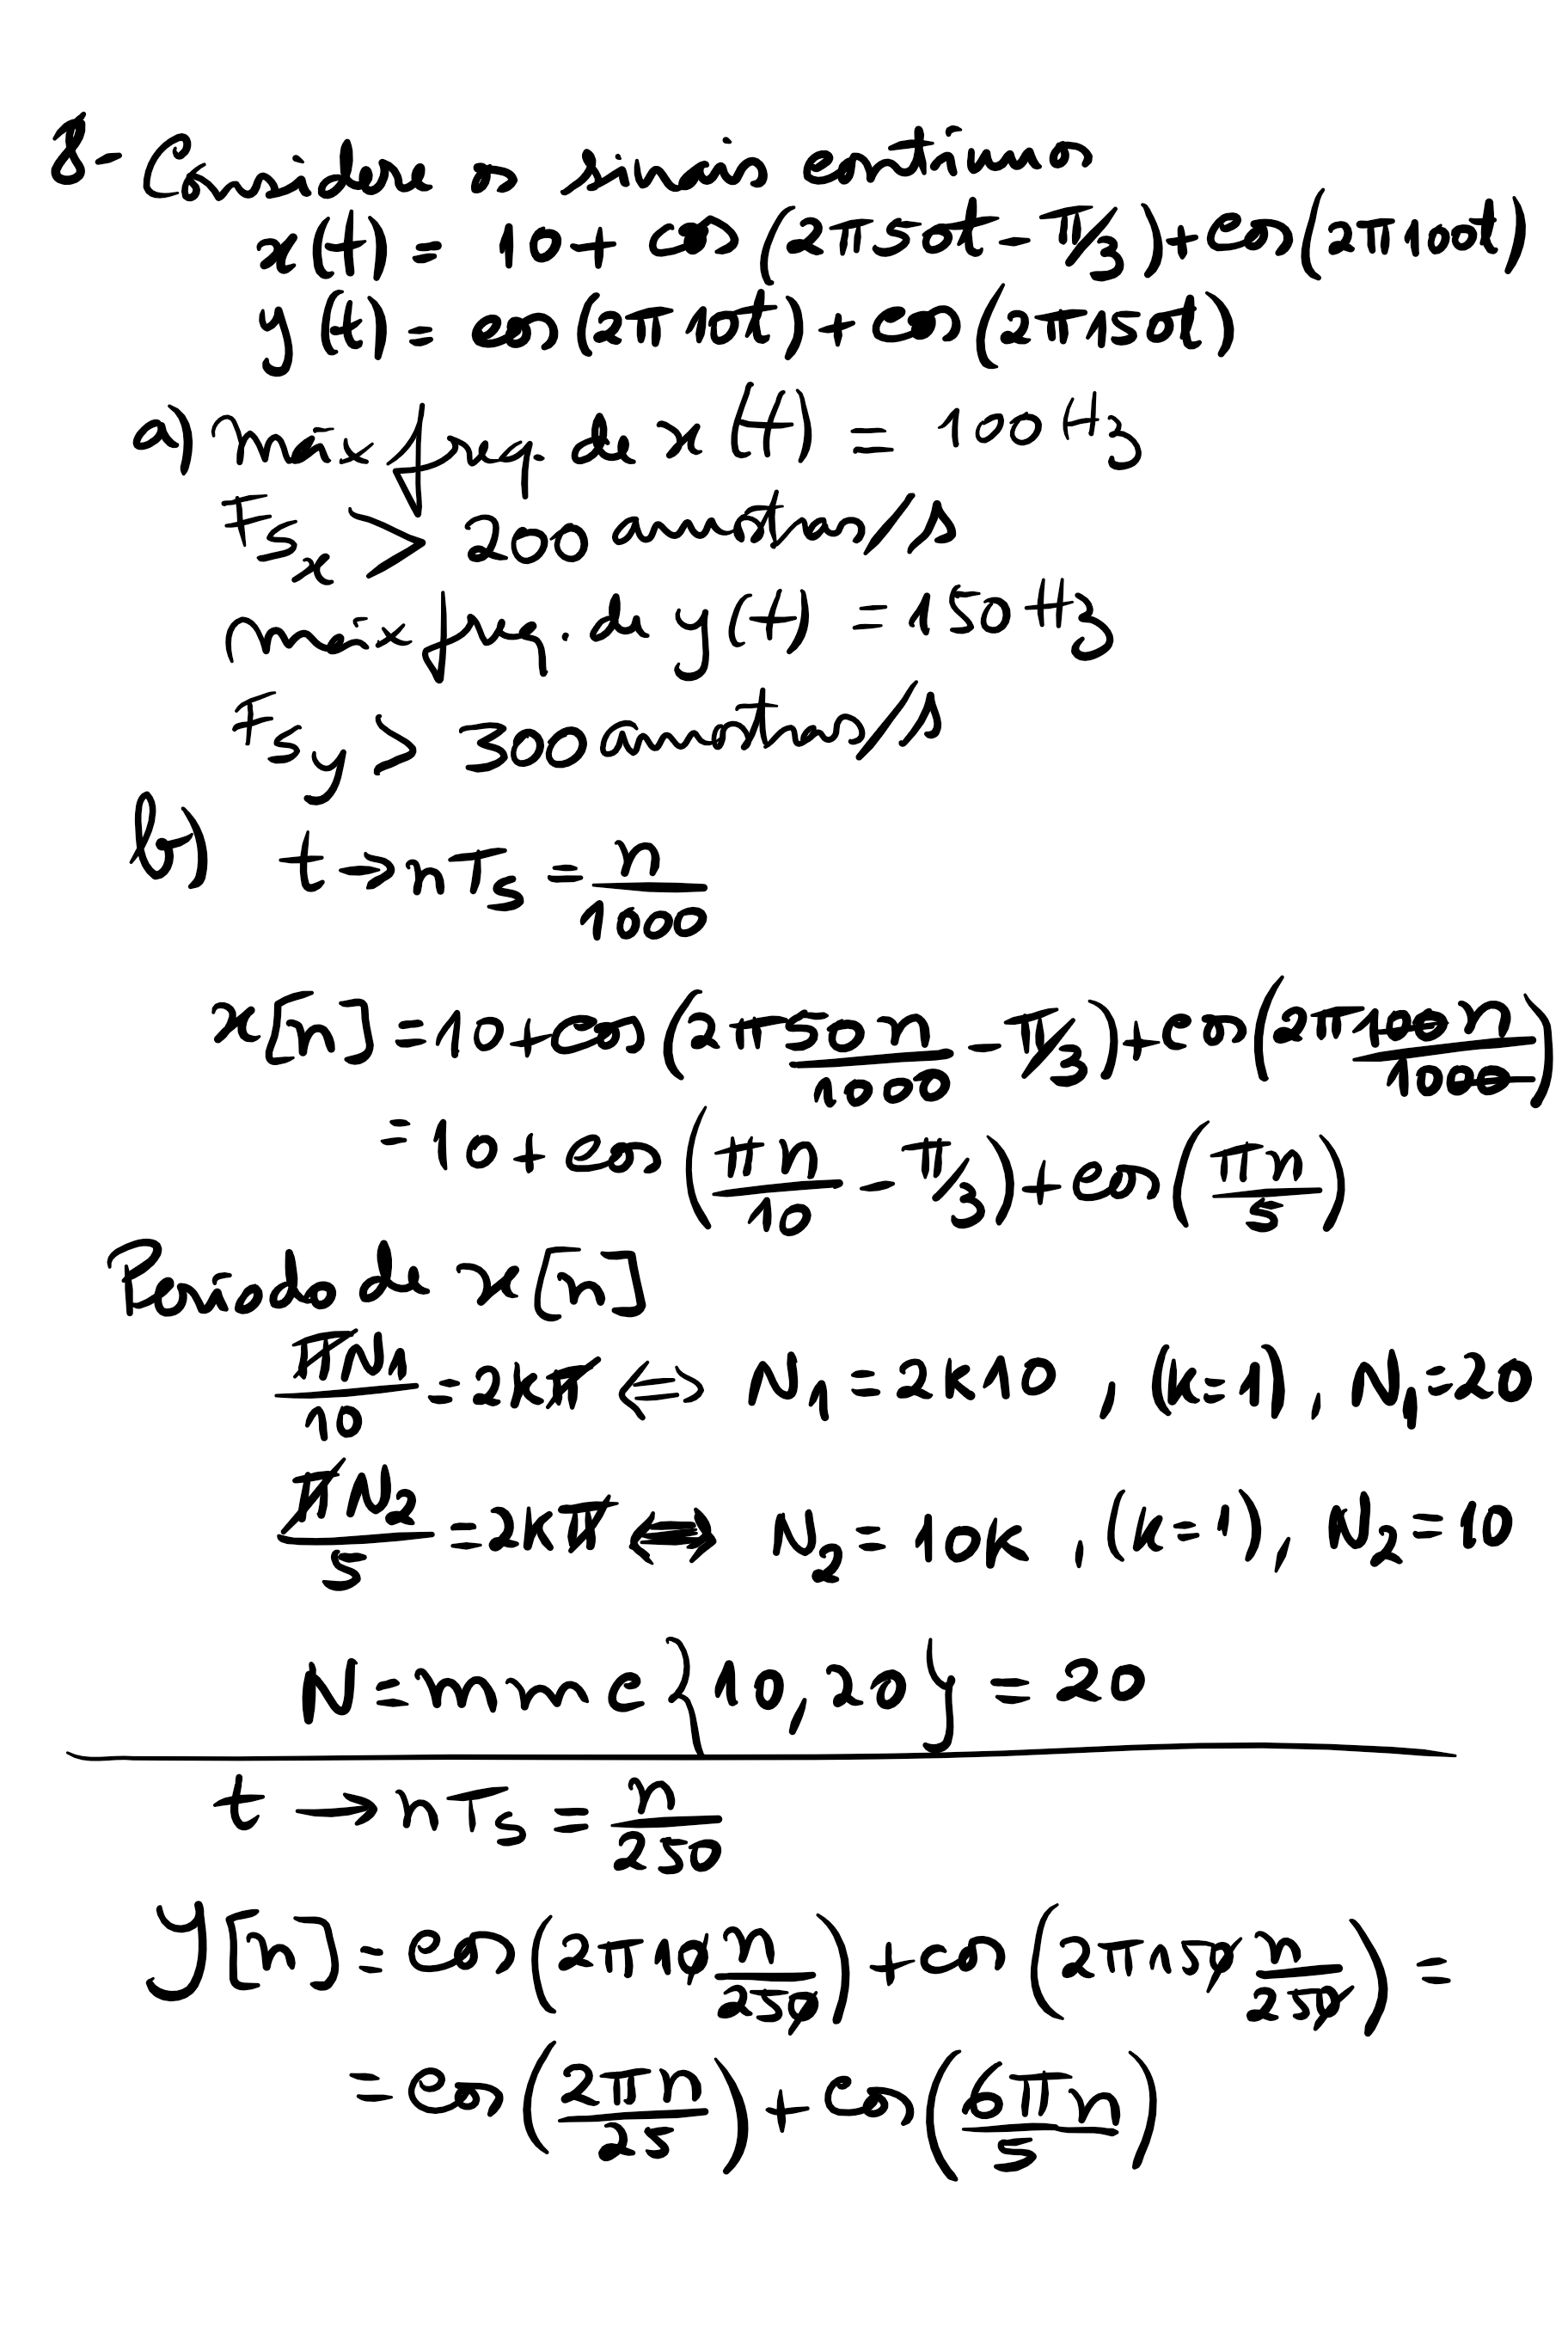 8- Considere os sinais contínuos
x(t) = 10 + cos(2π50t - π/3) + cos(2π100t)
y(t) = cos(2π10t) + cos(2π150t)
a) máx freq. de x(t) = 100Hz
Fsx > 200 amostras/s
máx freq. de y(t) = 150Hz
Fsy > 300 amostras/s
b) t → nTs = n/1000
x[n] = 10 + cos(2π50n/1000 - π/3) + cos(2π100n/1000)
= 10 + cos(πn/10 - π/3) + cos(πn/5)
Período de x[n]
πN1/10 = 2kπ ⇔ N1 = 2k10, (k=1), N1=20
πN2/5 = 2kπ ⇔ N2 = 10k, (k=1), N2=10
N = mmc{10,20} = 20
t → nTs = n/250
y[n] = cos(2π10n/250) + cos(2π150n/250) =
= cos(2πn/25) + cos(6πn/5)